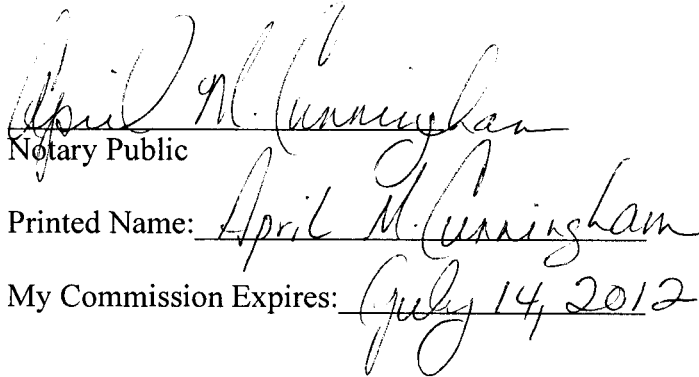 April M. Cunningham
Notary Public
Printed Name: April M. Cunningham
My Commission Expires: July 14, 2012